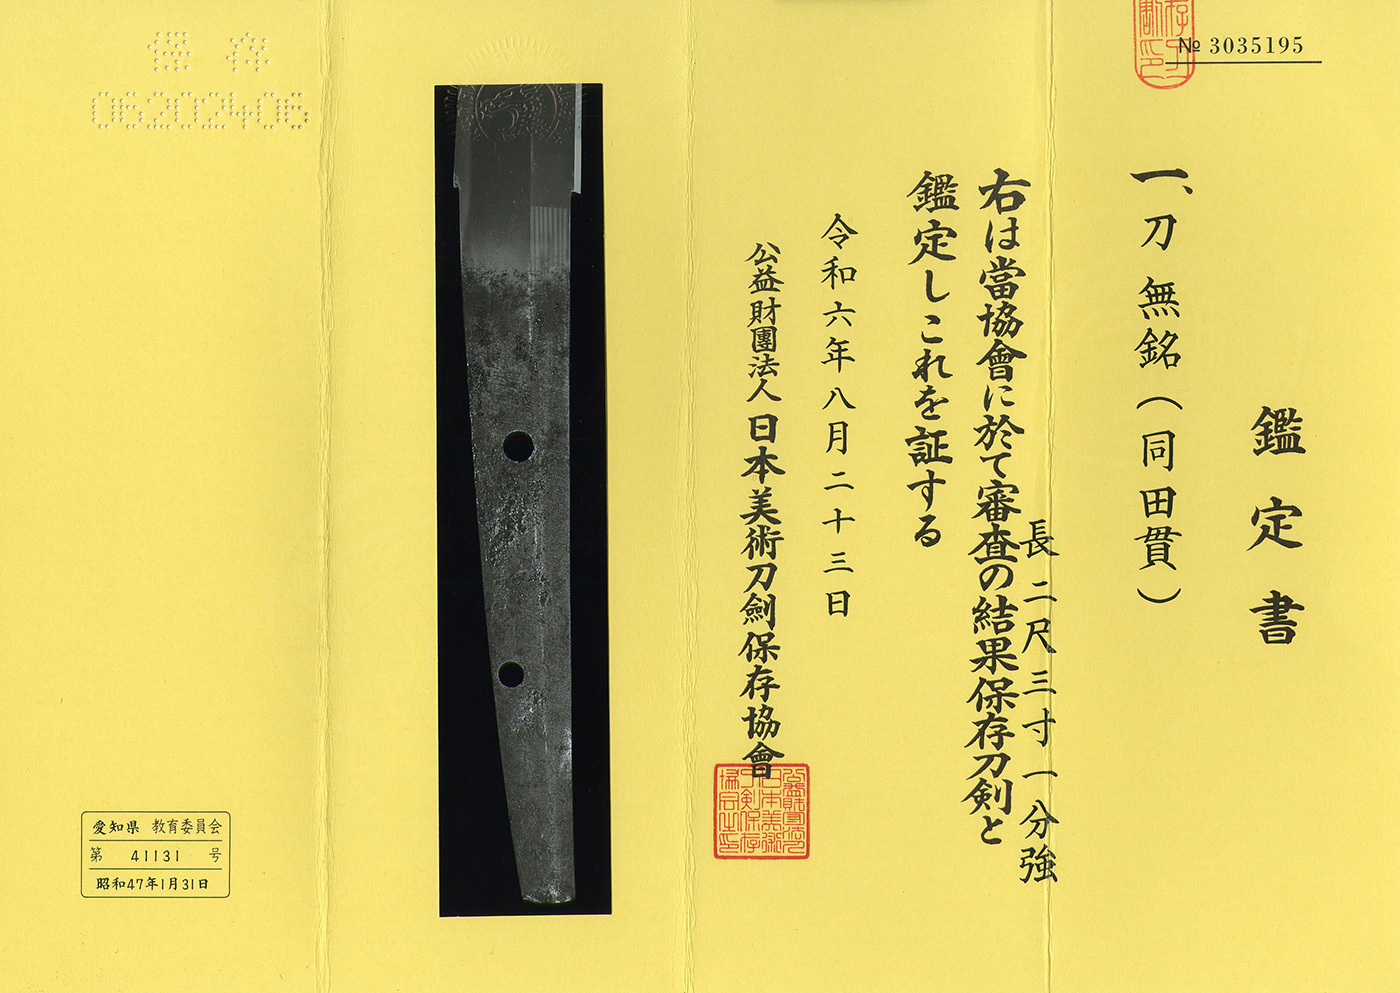 № 3035195
鑑定書
一、刀 無銘（同田貫）
長二尺三寸一分強
右は當協會に於て審査の結果保存刀剣と
鑑定しこれを証する
令和六年八月二十三日
公益財團法人日本美術刀劍保存協會
保存
06202406
愛知県 教育委員会
第 41131 号
昭和47年1月31日